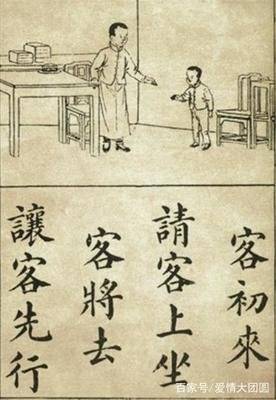 客初來
請客上坐
客將去
讓客先行
百家号/爱情大团圆